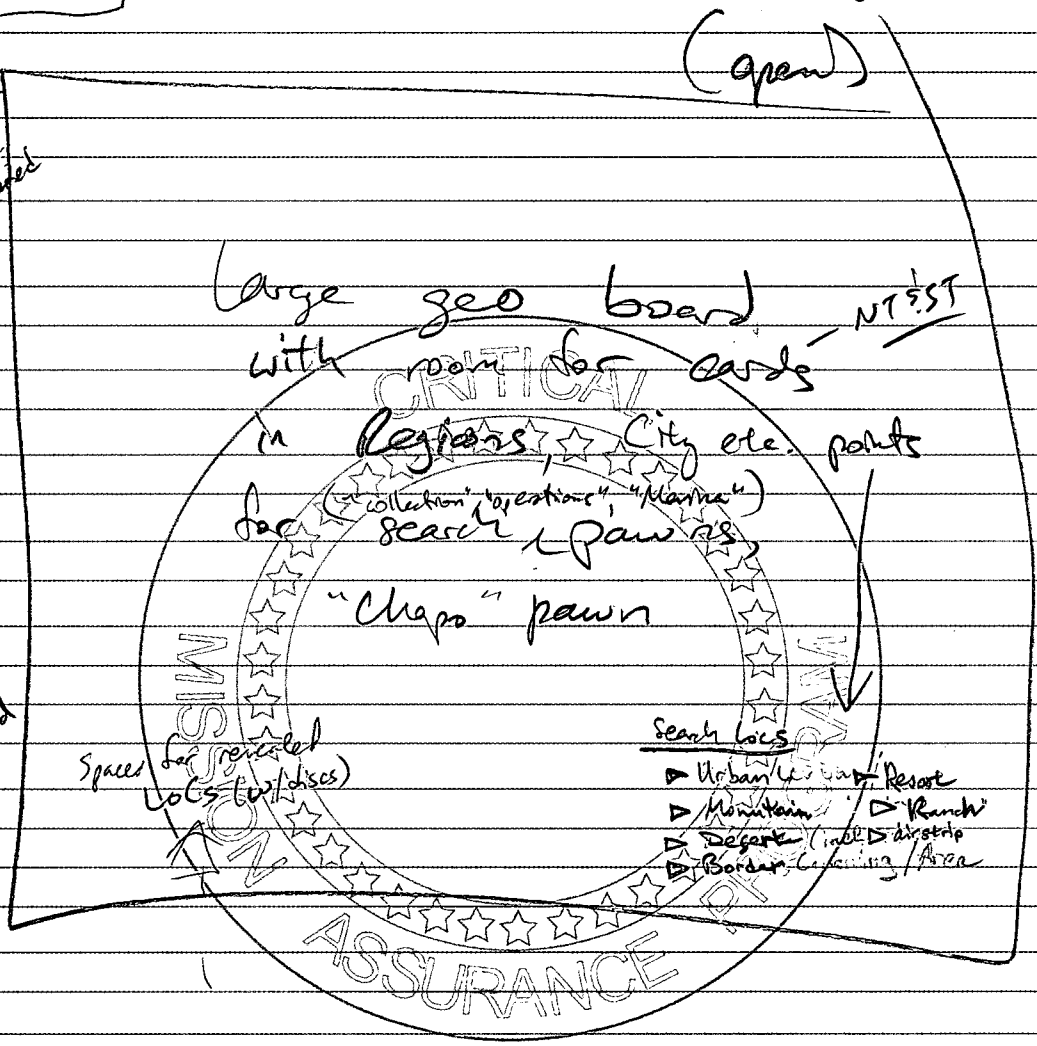 (open)
Large geo board
with room for cards — NT & ST
in Regions, City etc. points
("collection", "operations", "Marina")
for search pawns,
"Chapo" pawn
Spaces for revealed
LOCs (w/discs)
Search Locs
▷ Urban ▷ Resort
▷ Mountain ▷ Ranch
▷ Desert (incl ▷ airstrip
▷ Border Crossing / Area
CRITICAL
MISSION
ASSURANCE
PROGRAM